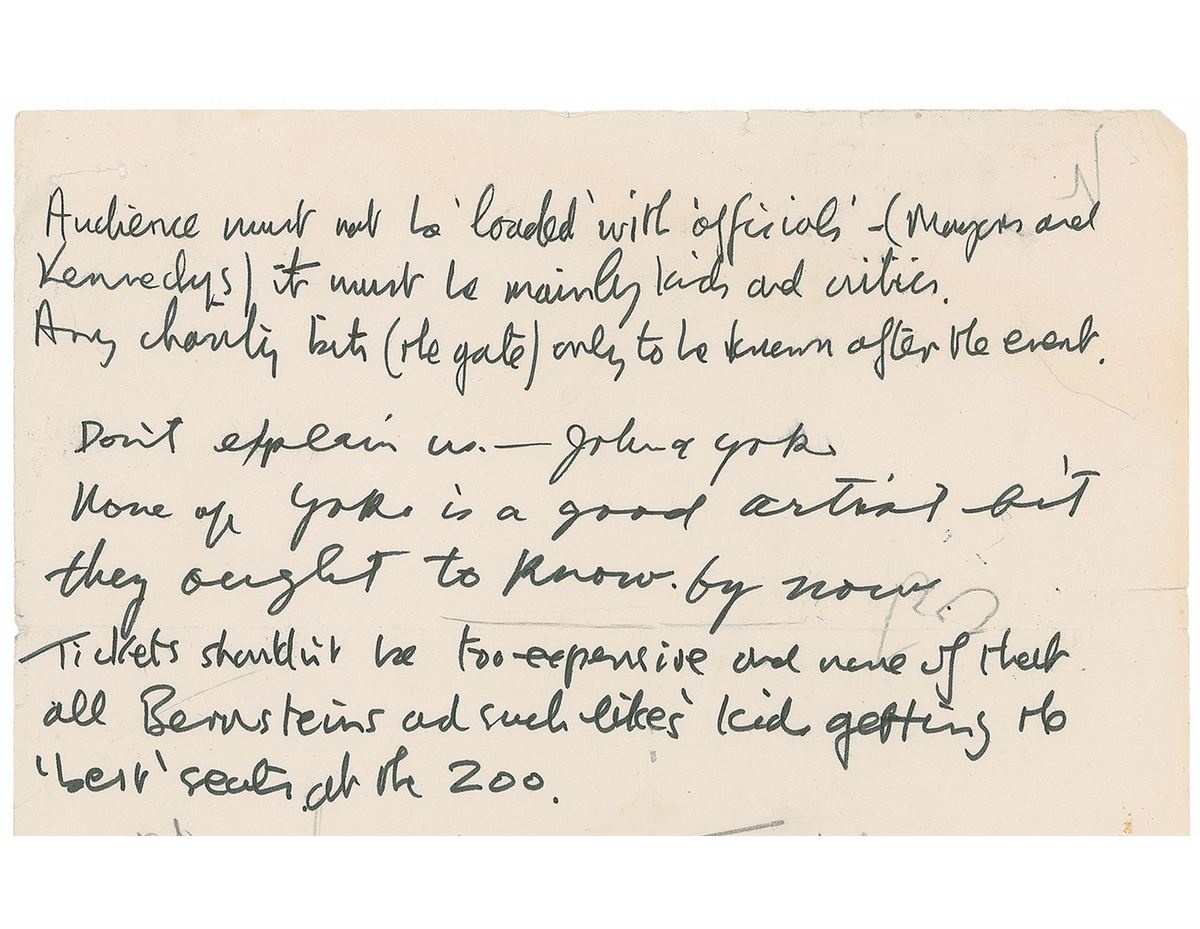 Audience must not be 'loaded' with 'officials' - (Mayors and
Kennedys) it must be mainly kids and critics.
Any charity bits (the gate) only to be known after the event.
Don't explain us. — John & Yoko
None of Yoko is a good artist bit
they ought to know. by now.
Tickets shouldn't be too expensive and none of that
all Bernsteins and such likes' kids getting the
'best' seats at the Zoo.